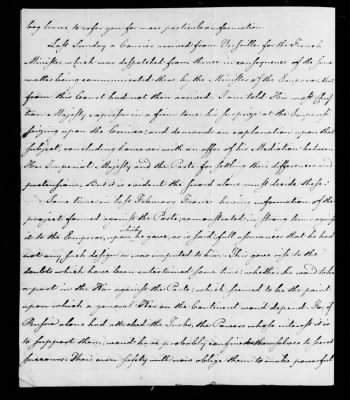 beg leave to refer you for more particular information.
Last Sunday a Courier arrived from Versailles for the French
Minister which was dispatched from thence in consequence of the same
matter being communicated there by the Minister of the Emperor, that
from this Court had not then arrived. I am told His most Chris
tian Majesty expresses in a firm tone his surprize at the Emperor's
seizing upon the Crimea; and demands an explanation upon that
subject, concluding however with an offer of his Mediation between
Her Imperial Majesty and the Porte for settling their differences and
pretensions. But it is evident the sword alone must decide these.
Some time in last February France having information of the
project formed against the Porte, remonstrated in strong terms against
it to the Emperor, upon which he gave, as is said, full assurances that he had
not any such design as was imputed to him. This gave rise to the
doubts which have been entertained some time, whether he would take
a part in the War against the Porte, which seemed to be the point
upon which a general War on the Continent would depend. For if
Russia alone had attacked the Turks, the Powers whose interest it is
to support them, would have probably confined themselves to secret
succours. Their own safety will now oblige them to make powerful